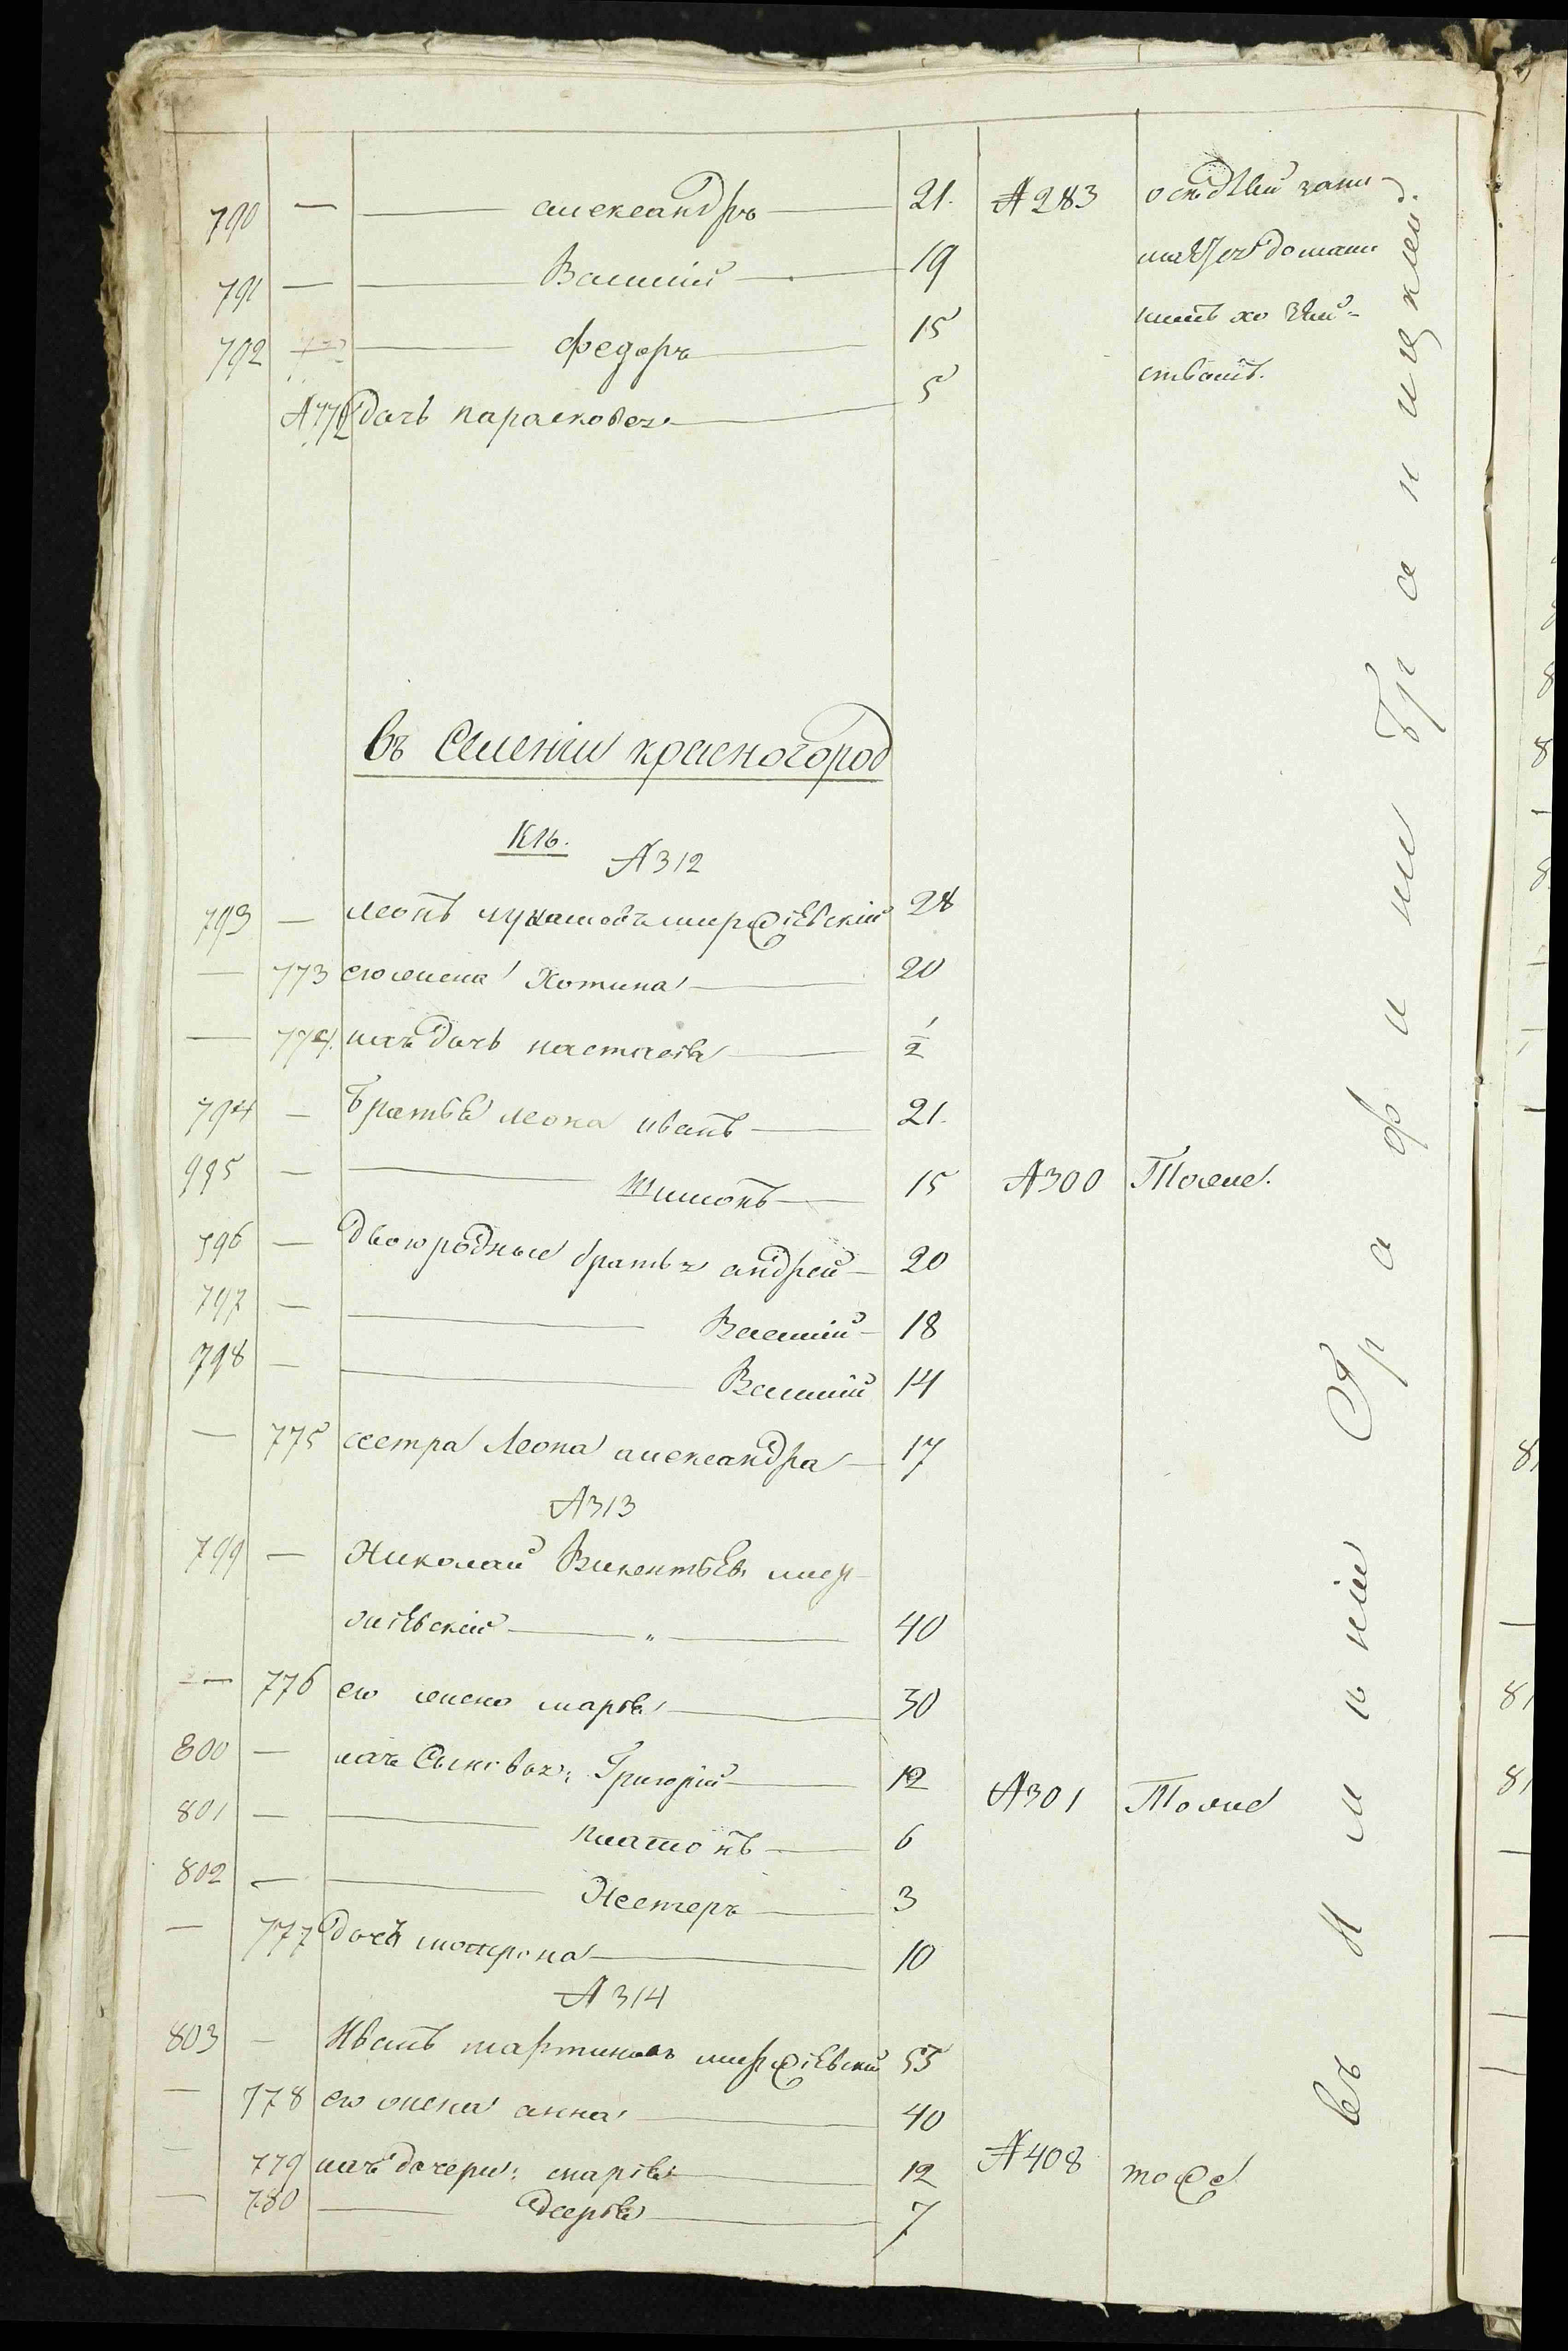 790 — — александръ — 21. №283 осѣдлый зани-
791 — — Василій — 19 маются домаш
792 — — федоръ — 15 нимъ хозяй-
№772 дочь парасковея — 5 ствомъ.
въ Селеніи красногород
кѣ.
№312
793 — леонъ лукашовъ миржіевскій 28
— 773 его жена Хотина — 20
— 774. ихъ дочь настасія — 1/2
794 — братья леона иванъ — 21.
795 — — Шимонъ — 15 №300 Тоже.
796 — двоюродные братья андрей — 20
797 — — Василій — 18
798 — — Василій 14
— 775 сестра Леона александра — 17
№313
799 — Николай Викентьевъ мир-
жіевскій — „ — 40
— 776 его жена марія — 30
800 — ихъ Сыновья: Григорій — 12 №301 Тоже
801 — — платонъ — 6
802 — — Нестеръ — 3
— 777 дочь матрона — 10
№314
803 — Иванъ мартиновъ миржіевскій 55
— 778 его жена анна — 40
— 779 ихъ дочери: марія — 12 №408 тоже
— 780 — — 7
въ имѣніи Графини Браницкей.